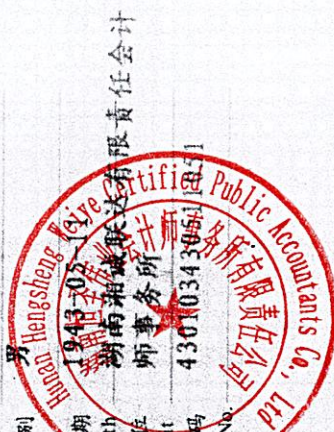 别 男
期 1943-05-11
th
位 湖南湘诚联达有限责任会计
师事务所
t
码 430103430511051
No.
Hunan Hengsheng Certified Public Accountants Co., Ltd
会计师事务所有限责任公司